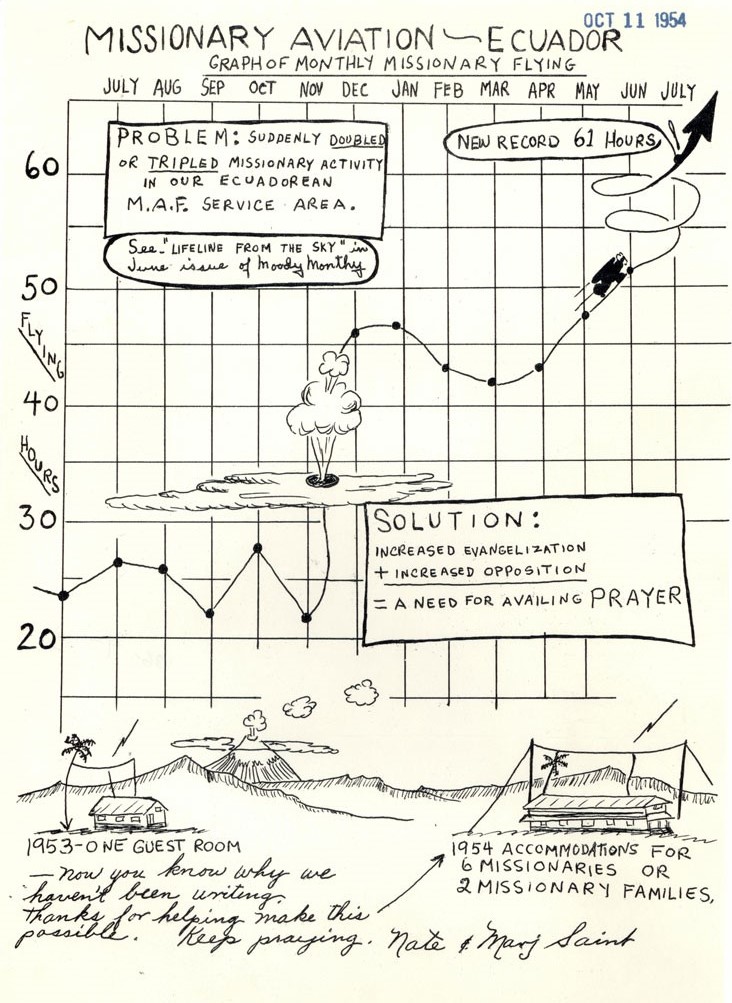 OCT 11 1954
MISSIONARY AVIATION — ECUADOR
GRAPH OF MONTHLY MISSIONARY FLYING
JULY AUG SEP OCT NOV DEC JAN FEB MAR APR MAY JUN JULY
PROBLEM: SUDDENLY DOUBLED
OR TRIPLED MISSIONARY ACTIVITY
IN OUR ECUADOREAN
M.A.F. SERVICE AREA.
NEW RECORD 61 HOURS
See "LIFELINE FROM THE SKY" in
June issue of Moody Monthly
60
50
FLYING
40
HOURS
30
20
SOLUTION:
INCREASED EVANGELIZATION
+ INCREASED OPPOSITION
= A NEED FOR AVAILING PRAYER
1953-ONE GUEST ROOM
— now you know why we
haven't been writing.
Thanks for helping make this
possible. Keep praying. Nate & Marj Saint
1954 ACCOMMODATIONS FOR
6 MISSIONARIES OR
2 MISSIONARY FAMILIES.